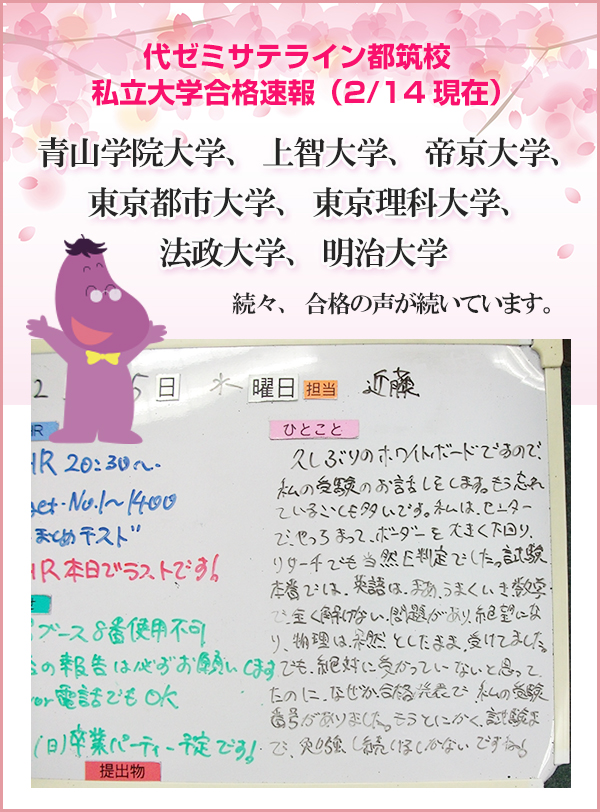 代ゼミサテライン都筑校
私立大学合格速報（2/14 現在）
青山学院大学、 上智大学、 帝京大学、
東京都市大学、 東京理科大学、
法政大学、 明治大学
続々、 合格の声が続いています。
2 5日 水 曜日 担当 近藤
HR
HR 20:30〜
get・No.1〜1400
まとめテスト"
HR 本日でラストです!
ブース 8番使用不可
の報告は必ずお願いします
or電話でもOK
(日)卒業パーティー予定です!
提出物
ひとこと
久しぶりのホワイトボードですので、
私の受験のお話しをします。もう忘れ
ていることも多いです。私は、センター
でやっちまって、ボーダーを大きく下回り、
リサーチでも当然E判定でした。試験
本番では、英語は、まあ、うまくいき数学
で、全く解けない問題があり、絶望にな
り、物理は、呆然としたまま、受けてました。
でも、絶対に受かっていないと思って
たのに、なぜか合格発表で、私の受験
番号がありました。そうとにかく、試験ま
で、勉強し続けるしかないですね。